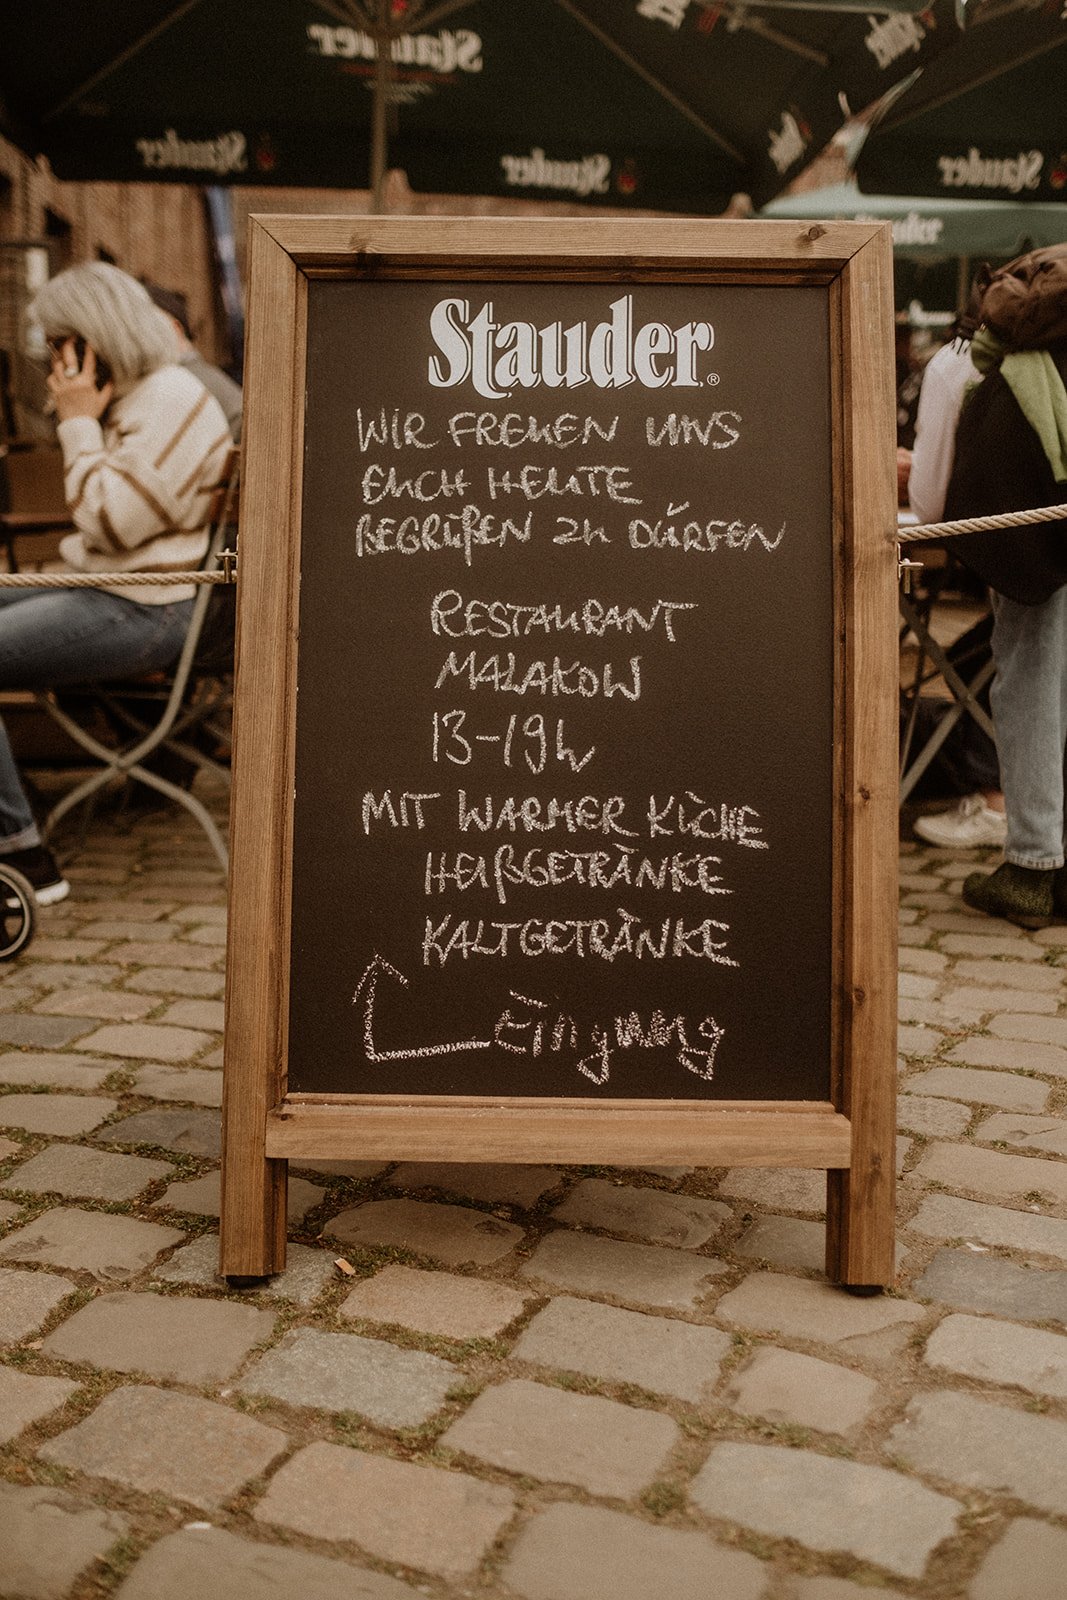 Stauder
Stauder
Stauder
Stauder
Stauder
Stauder®
WIR FREUEN UNS
EUCH HEUTE
BEGRÜßEN ZU DÜRFEN
RESTAURANT
MALAKOW
13-19h
MIT WARMER KÜCHE
HEIßGETRÄNKE
KALTGETRÄNKE